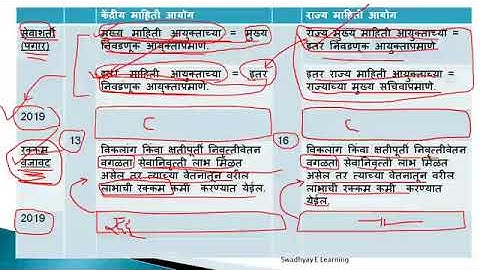 केंद्रीय माहिती आयोग
राज्य माहिती आयोग
सेवाशर्ती
(पगार)
मुख्य माहिती आयुक्ताच्या = मुख्य
निवडणूक आयुक्ताप्रमाणे.
इतर माहिती आयुक्ताच्या = इतर
निवडणूक आयुक्ताप्रमाणे.
राज्य मुख्य माहिती आयुक्ताच्या =
इतर निवडणूक आयुक्ताप्रमाणे.
इतर राज्य माहिती आयुक्ताच्या =
राज्याच्या मुख्य सचिवाप्रमाणे.
2019
C
C
रक्कम
वजावट
13
विकलांग किंवा क्षतीपूर्ती निवृत्तीवेतन
वगळता सेवानिवृत्ती लाभ मिळत
असेल तर त्याच्या वेतनातून वरील
लाभाची रक्कम कमी करण्यात येईल.
16
विकलांग किंवा क्षतीपूर्ती निवृत्तीवेतन
वगळता सेवानिवृत्ती लाभ मिळत
असेल तर त्याच्या वेतनातून वरील
लाभाची रक्कम कमी करण्यात
येईल.
2019
रद्द
Swadhyay E Learning